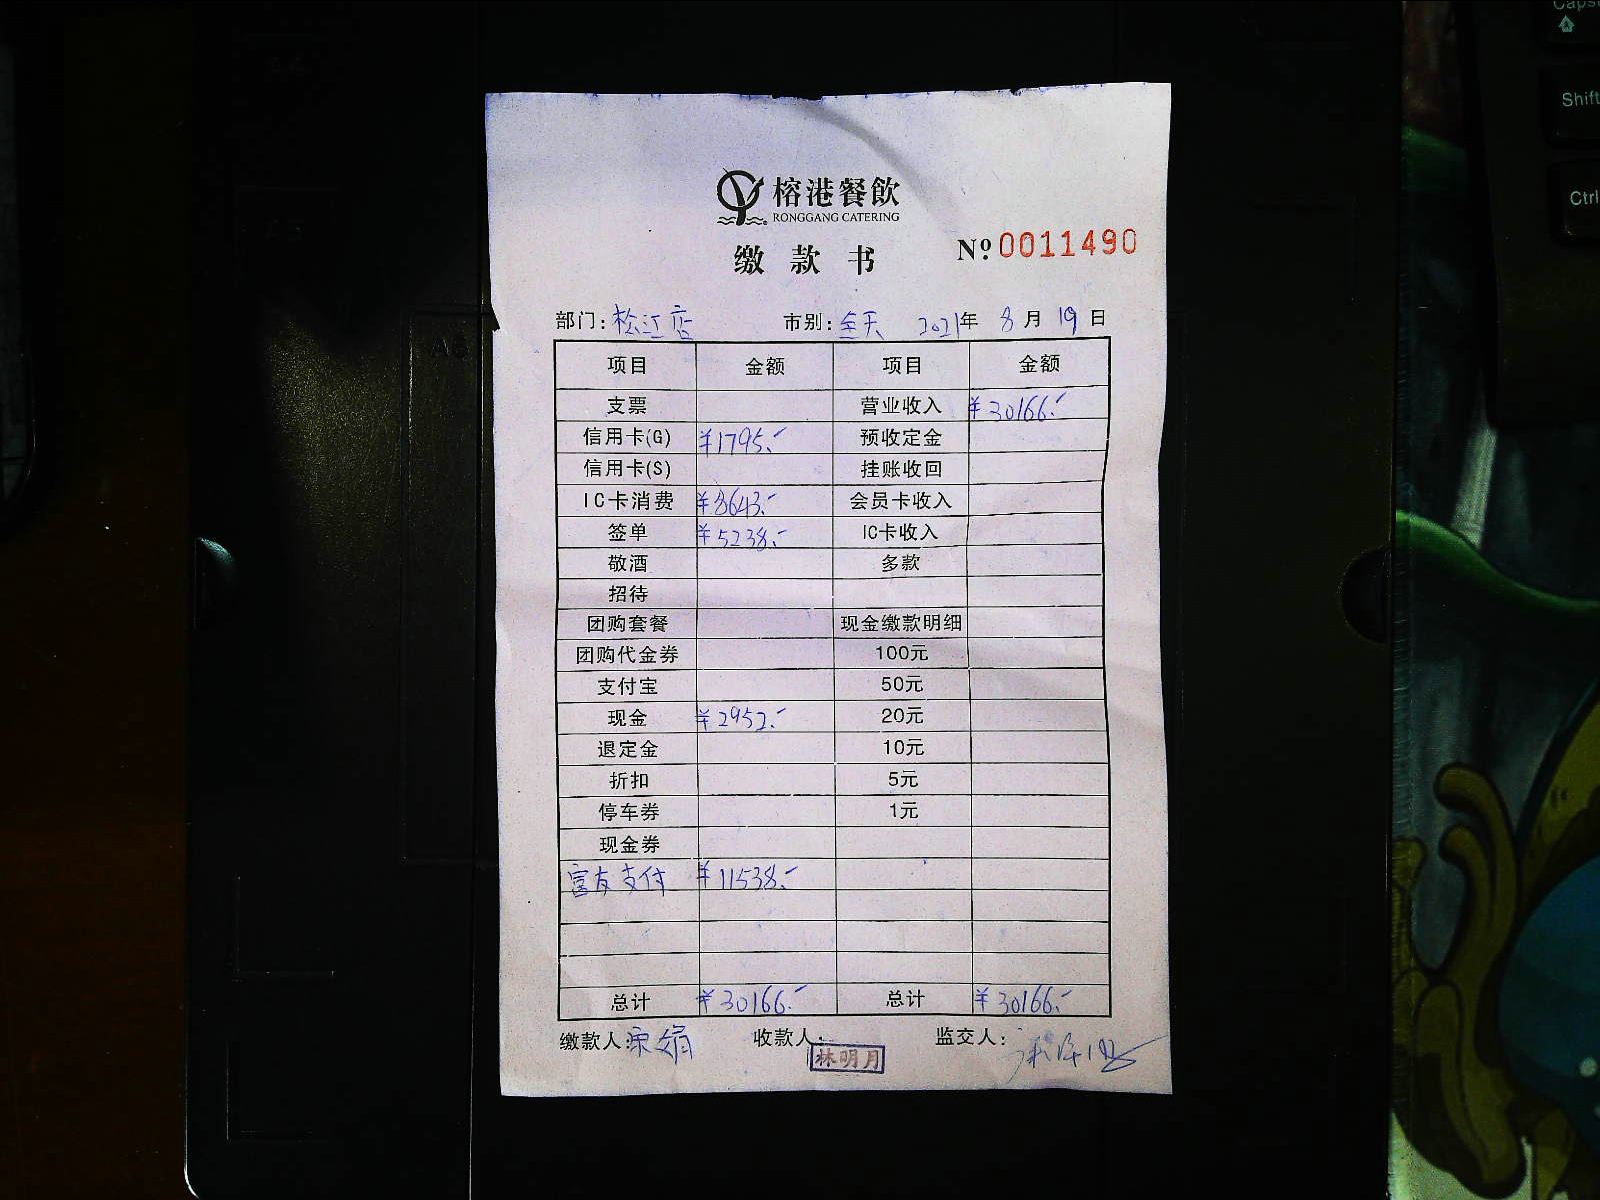 Caps
Shift
Ctrl
A6
榕港餐飲
RONGGANG CATERING
缴款书 Nº 0011490
部门: 松江店 市别: 全天 2021年 8月 19日
项目 金额 项目 金额
支票 营业收入 ¥30166.-
信用卡(G) ¥1795.- 预收定金
信用卡(S) 挂账收回
IC卡消费 ¥8643.- 会员卡收入
签单 ¥5238.- IC卡收入
敬酒 多款
招待
团购套餐 现金缴款明细
团购代金券 100元
支付宝 50元
现金 ¥2952.- 20元
退定金 10元
折扣 5元
停车券 1元
现金券
富友支付 ¥11538.-
总计 ¥30166.- 总计 ¥30166.-
缴款人: 收款人: 林明月 监交人: